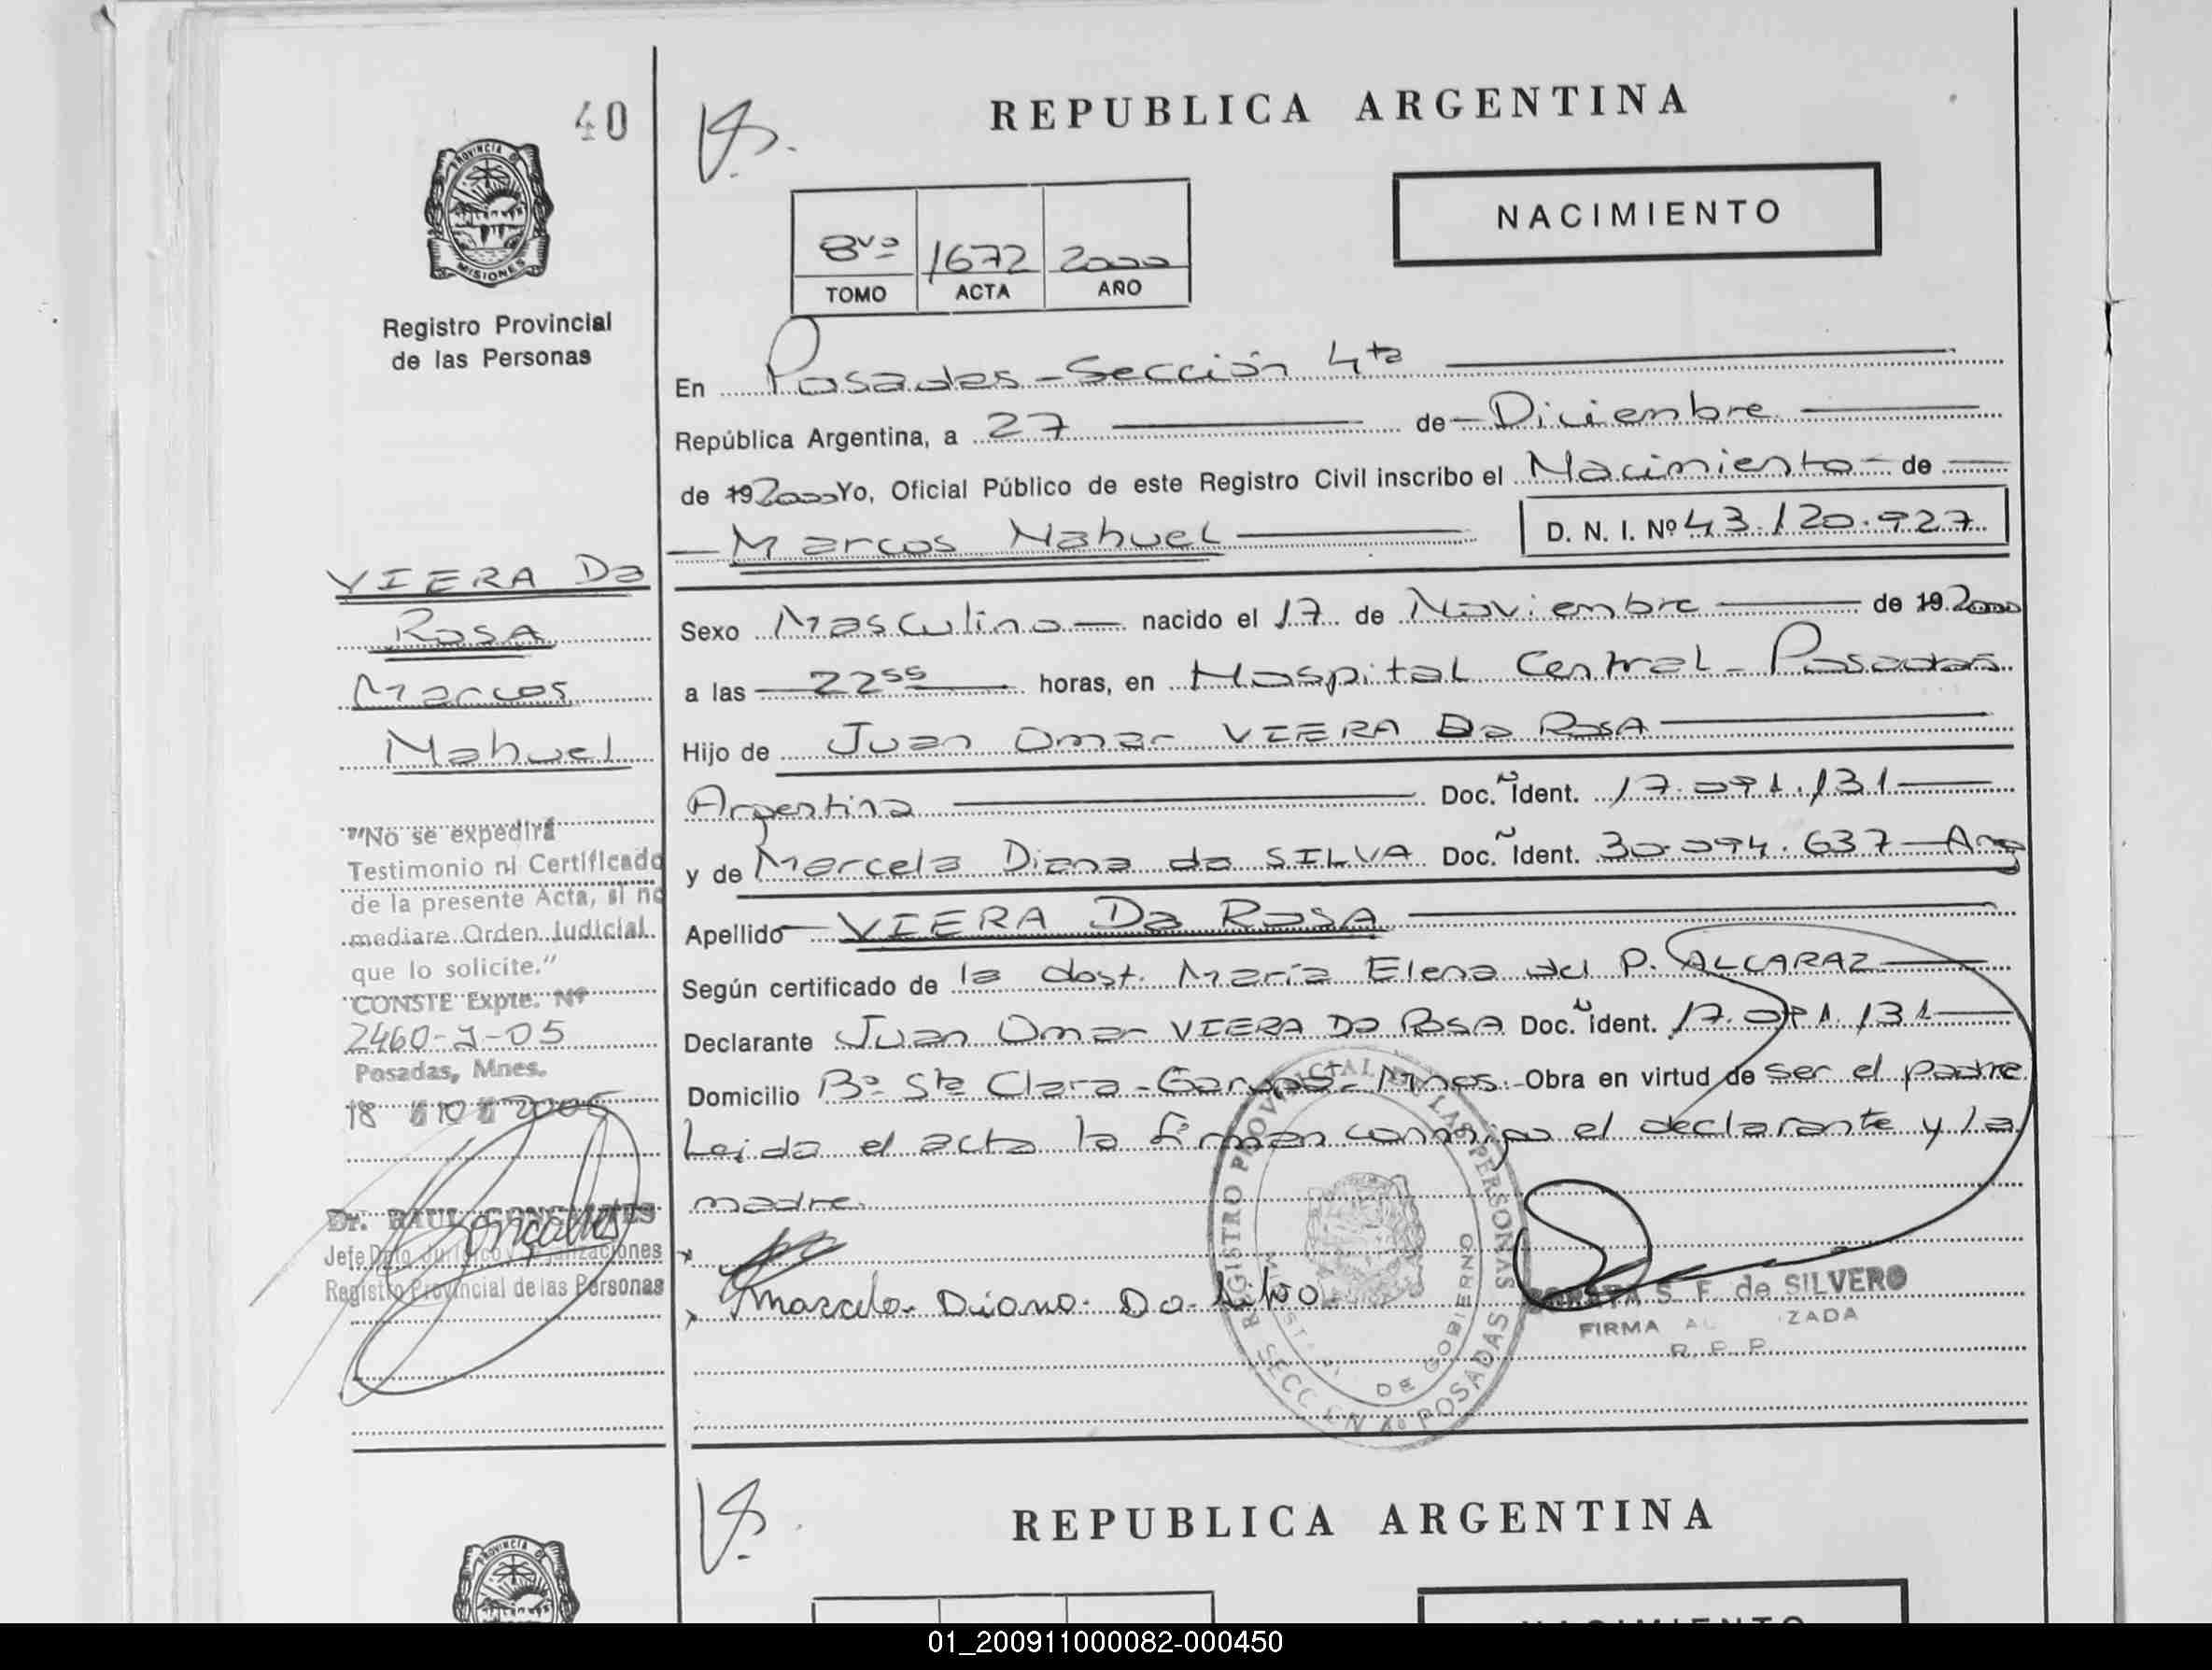 40
REPUBLICA ARGENTINA
PROVINCIA DE
MISIONES
Registro Provincial
de las Personas
NACIMIENTO
8vo 1672 2000
TOMO ACTA AÑO
En Posadas - Sección 4ta
República Argentina, a 27 de Diciembre
de 19 2000 Yo, Oficial Público de este Registro Civil inscribo el Nacimiento de
Marcos Nahuel D. N. I. Nº 43.120.927
VIERA Da
Rosa
Marcos
Nahuel
Sexo Masculino nacido el 17 de Noviembre de 19 2000
a las 22 55 horas, en Hospital Central - Posadas
Hijo de Juan Omar VIERA Da ROSA
Argentina Doc. Ñ Ident. 17.091.131
y de Marcela Diana da SILVA Doc. Ñ Ident. 30.094.637 - Arg
Apellido VIERA Da ROSA
Según certificado de la obst. María Elena del P. ALCARAZ
Declarante Juan Omar VIERA Da ROSA Doc. Ñ Ident. 17.091.131
Domicilio Bº Sta Clara - Garupá - Mnes. Obra en virtud de ser el padre
Leída el acta la firman conmigo el declarante y la
madre.
Marcela Diana Da Silva
"No se expedirá
Testimonio ni Certificado
de la presente Acta, si no
mediare Orden Judicial
que lo solicite."
CONSTE Expte. Nº
2460-J-05
Posadas, Mnes.
18
Dr. RAUL
Jefe Dpto. Jurídico y
Registro Provincial de las Personas
REGISTRO PROVINCIAL DE LAS PERSONAS
DE GOBIERNO
SECCION 4º POSADAS
S. F. de SILVERO
FIRMA
R. P. P.
REPUBLICA ARGENTINA
PROVINCIA DE
NACIMIENTO
01_200911000082-000450